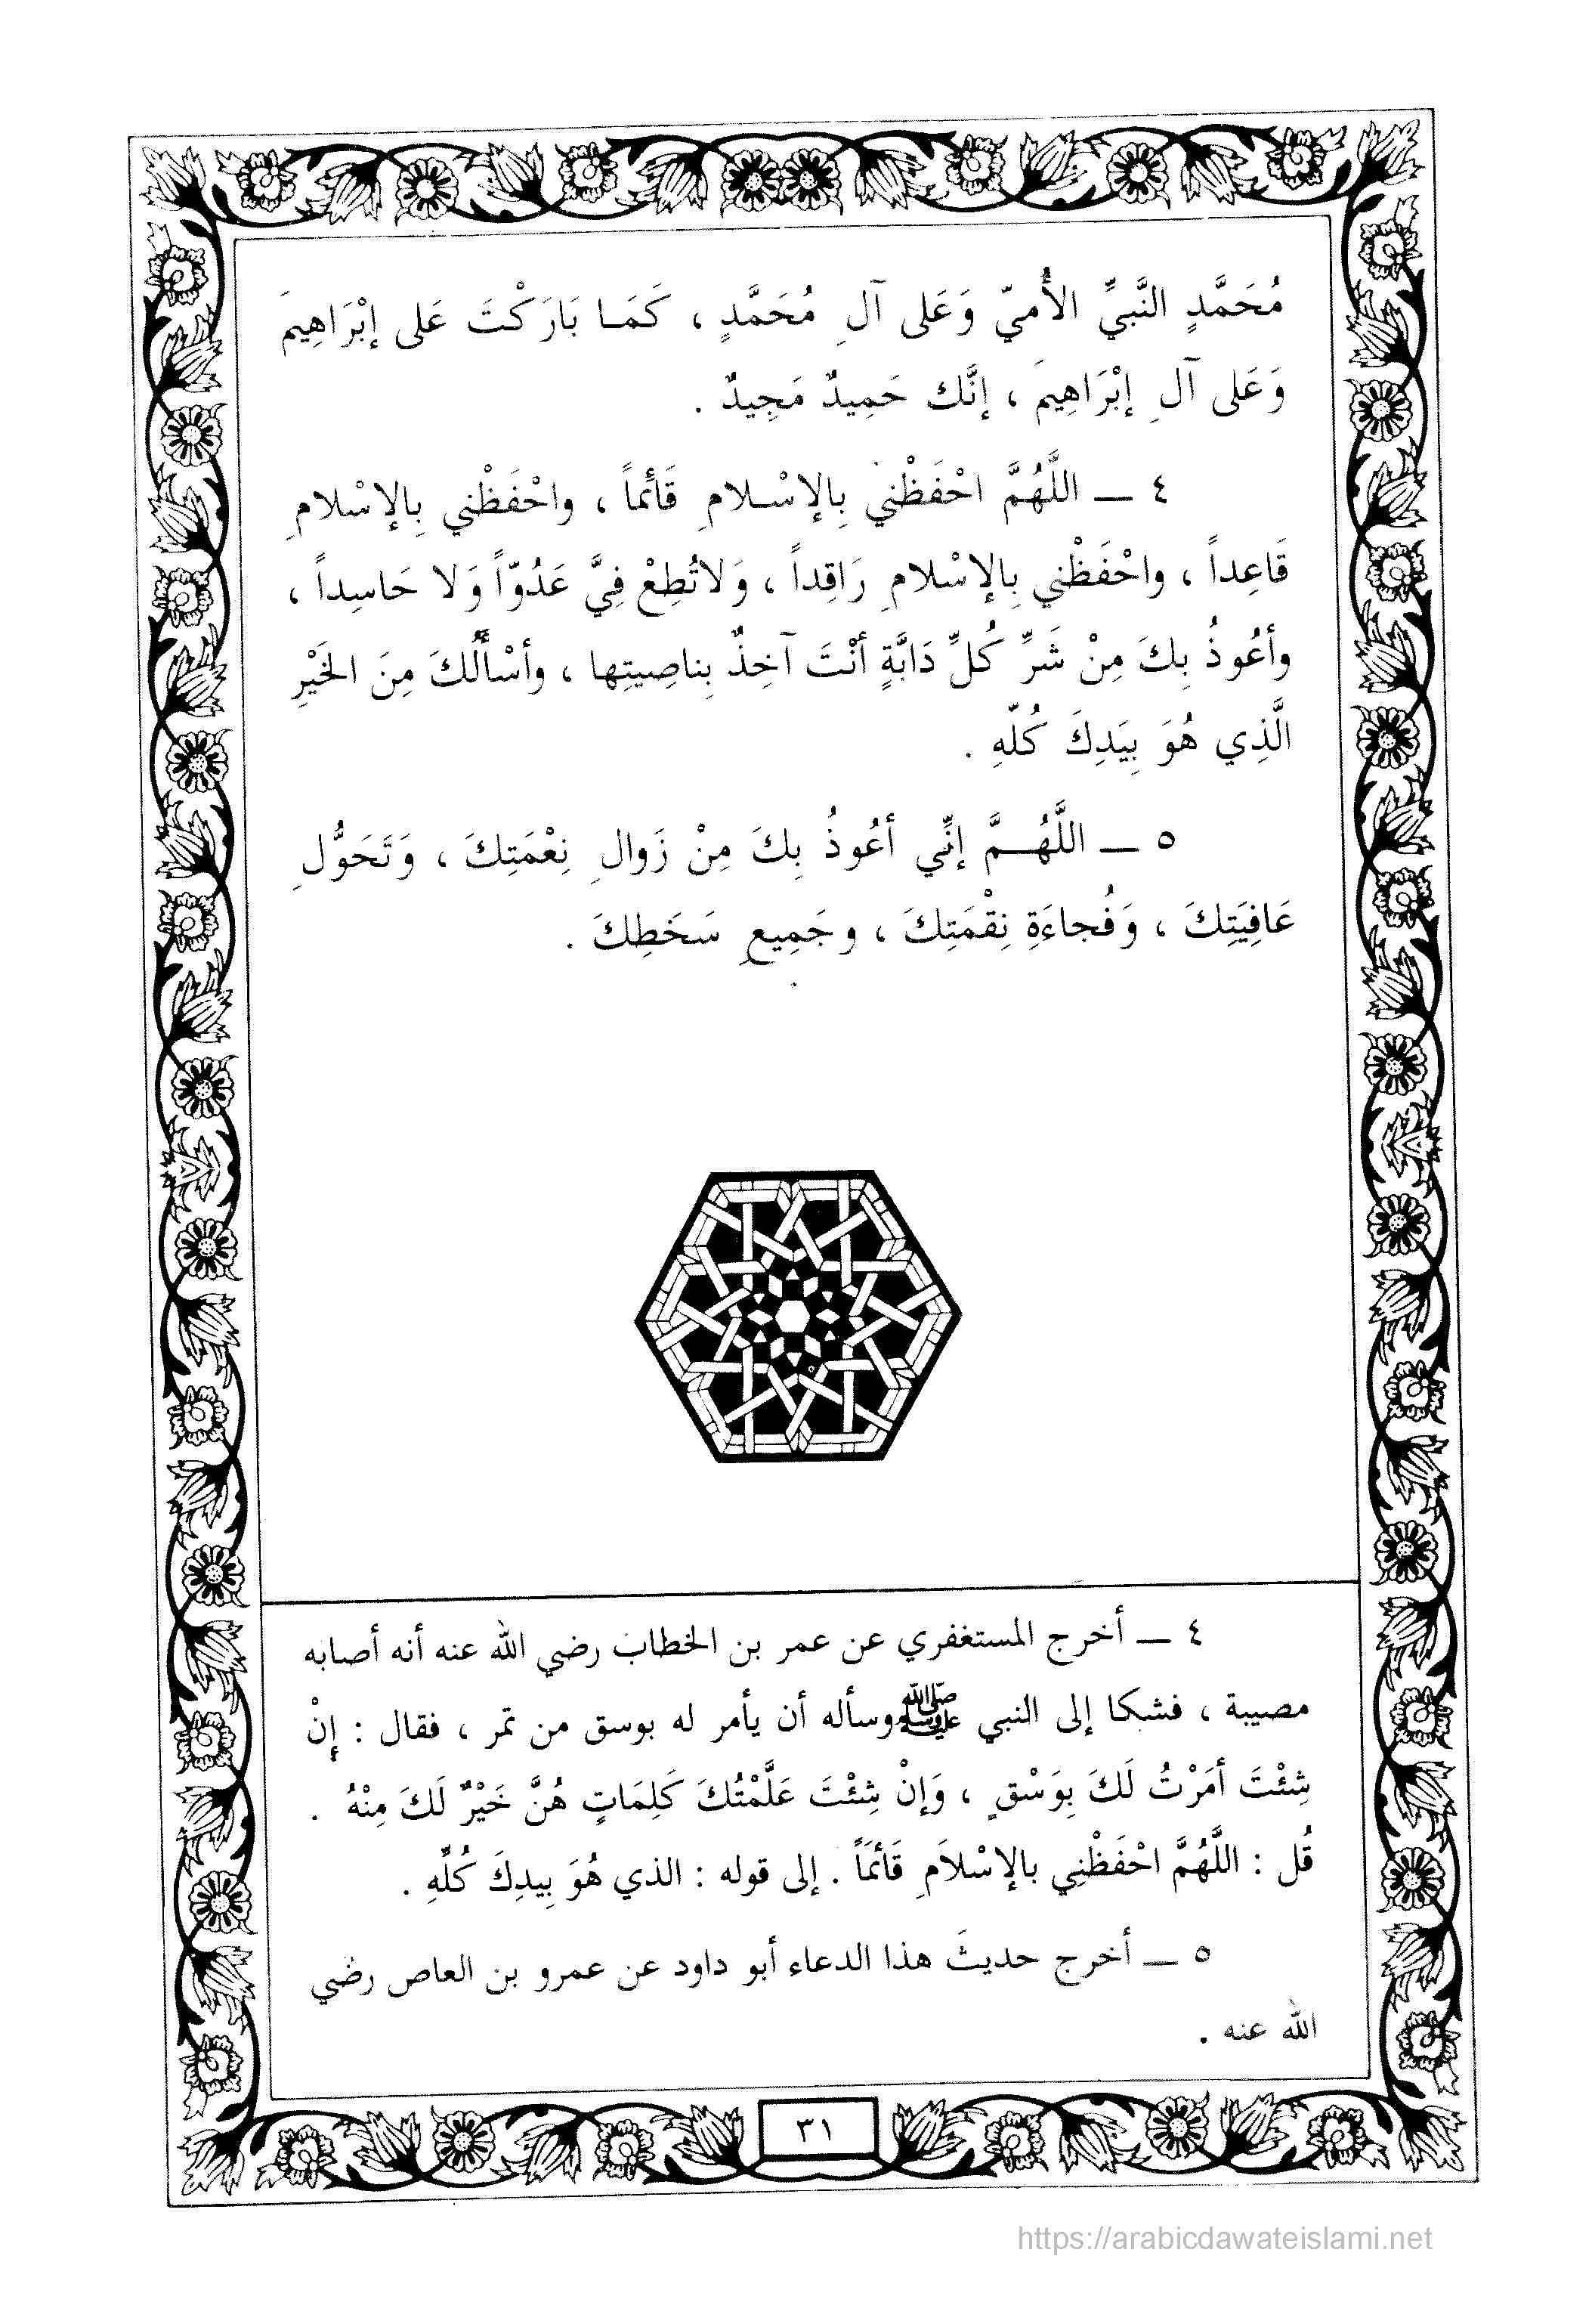 مُحَمَّدٍ النَّبيِّ الأُميّ وَعَلى آلِ مُحَمَّدٍ ، كَمَـا بَارَكْتَ عَلى إبْرَاهِيمَ
وَعَلى آلِ إبْرَاهِيمَ ، إنَّك حَمِيدٌ مَجِيدٌ .
٤ ـــ اللَّهُمَّ احْفَظْني بِالإسْـلامِ قَائِماً ، واحْفَظْني بِالإسْلامِ
قَاعِداً ، واحْفَظْني بِالإسْلامِ رَاقِداً ، وَلاتُطِعْ فِيَّ عَدُوّاً وَلا حَاسِداً ،
وأعُوذُ بِكَ مِنْ شَرِّ كُلِّ دَابَّةٍ أنْتَ آخِذٌ بِناصِيتِها ، وأسْألُكَ مِنَ الخَيْرِ
الَّذِي هُوَ بِيَدِكَ كُلّهِ .
٥ ـــ اللَّهُـــمَّ إنِّي أعُوذُ بِكَ مِنْ زَوالِ نِعْمَتِكَ ، وَتَحَوُّلِ
عَافِيَتِكَ ، وَفُجاءَةِ نِقْمَتِكَ ، وجَمِيعِ سَخَطِكَ .
٤ ـــ أخرج المستغفري عن عمر بن الخطاب رضي الله عنه أنه أصابه
مصيبة ، فشكا إلى النبي ﷺ وسأله أن يأمر له بوسق من تمر ، فقال : إنْ
شِئْتَ أمَرْتُ لَكَ بِوَسْقٍ ، وَإنْ شِئْتَ عَلَّمْتُكَ كَلِمَاتٍ هُنَّ خَيْرٌ لَكَ مِنْهُ .
قُل : اللَّهُمَّ احْفَظْنِي بالإسْلاَمِ قَائمَاً . إلى قوله : الذي هُوَ بِيدِكَ كُلِّهِ .
٥ ـــ أخرج حديثَ هذا الدعاء أبو داود عن عمرو بن العاص رضي
الله عنه .
٣١
https://arabicdawateislami.net